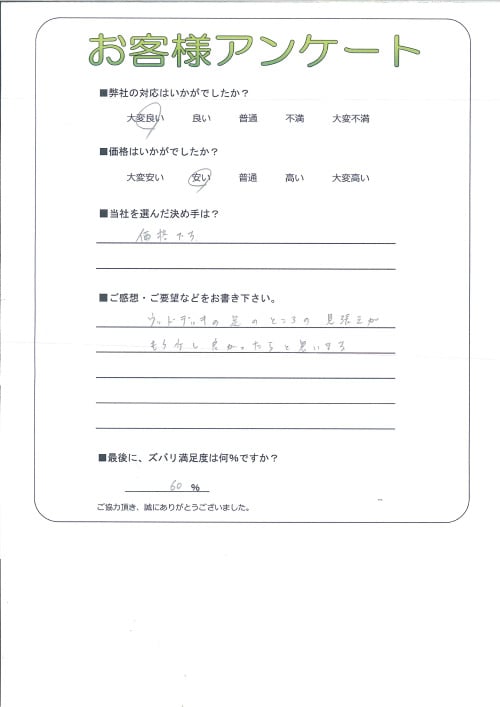 お客様アンケート
■弊社の対応はいかがでしたか？
大変良い 良い 普通 不満 大変不満
■価格はいかがでしたか？
大変安い 安い 普通 高い 大変高い
■当社を選んだ決め手は？
価格です
■ご感想・ご要望などをお書き下さい。
ウッドデッキの足のところの見張えが
もう少し良かったらと思います
■最後に、ズバリ満足度は何%ですか？
60 %
ご協力頂き、誠にありがとうございました。